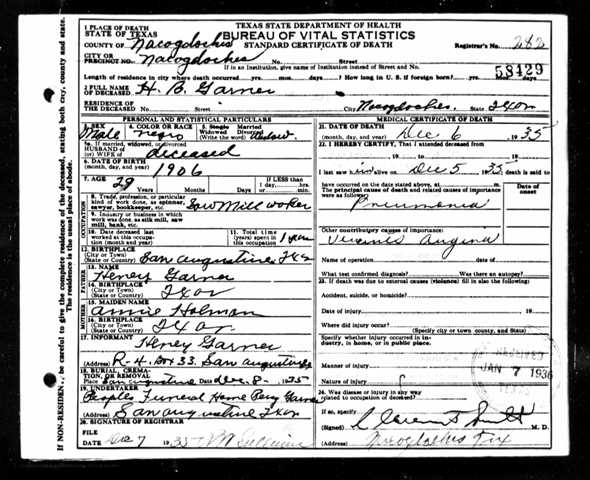 TEXAS STATE DEPARTMENT OF HEALTH
BUREAU OF VITAL STATISTICS
STANDARD CERTIFICATE OF DEATH
1 PLACE OF DEATH
STATE OF TEXAS
COUNTY OF Nacogdoches
Registrar's No. 282
CITY OR
PRECINCT NO. Nacogdoches No. Street
If in an Institution, give name of Institution instead of Street and No.
58429
Length of residence in city where death occurred yrs. mos. days? How long in U. S. if foreign born? yrs. mos. days.
2 FULL NAME
OF DECEASED H. B. Garner
RESIDENCE OF
THE DECEASED No. Street City Nacogdoches, State
PERSONAL AND STATISTICAL PARTICULARS
3. SEX Male
4. COLOR OR RACE negro
5. Single Married
Widowed Divorced
(Write the word)
5a. If married, widowed, or divorced
HUSBAND of
(or) WIFE of deceased
6. DATE OF BIRTH
(month, day, and year) 1906
7. AGE 29 Years Months Days
If LESS than
1 day, hrs.
or min.
8. Trade, profession, or particular
kind of work done, as spinner,
sawyer, bookkeeper, etc. Saw Mill worker
9. Industry or business in which
work was done, as silk mill, saw
mill, bank, etc.
10. Date deceased last
worked at this occupation
(month and year)
11. Total time
(years) spent in
this occupation 1 year
12. BIRTHPLACE
(City or Town)
(State or Country) San augustine Txs
FATHER
13. NAME Henry Garner
14. BIRTHPLACE
(City or Town)
(State or Country)
MOTHER
15. MAIDEN NAME Annie Holman
16. BIRTHPLACE
(City or Town)
(State or Country)
17. INFORMANT Henry Garner
(Address) R-4, Box 33. San augustine
18. BURIAL, CREMATION, OR REMOVAL
Place San augustine Date Dec. 8- 1935
19. UNDERTAKER Peoples Funeral Home
(Address) San augustine
20. SIGNATURE OF REGISTRAR
FILE
DATE Dec 7 1935
MEDICAL CERTIFICATE OF DEATH
21. DATE OF DEATH
(month, day, and year) Dec 6 1935
22. I HEREBY CERTIFY, That I attended deceased
from 19 to 19
I last saw him alive on Dec 5 1935 death is said to
have occurred on the date stated above, at m.
The principal cause of death and related causes of importance
were as follows:
Date of
onset
Pneumonia
Other contributory causes of importance:
Vincents Angina
Name of operation date of
What test confirmed diagnosis? Was there an autopsy?
23. If death was due to external causes (violence) fill in also the following:
Accident, suicide, or homicide?
Date of injury 19
Where did injury occur?
(Specify city or town, county, and State)
Specify whether injury occurred in industry, in home, or in public place.
Manner of injury
Nature of injury
24. Was disease or injury in any way
related to occupation of deceased?
If so, specify
(Signed) M. D.
(Address) Nacogdoches Tex
RECEIVED
JAN 7 1936
TEXAS
If NON-RESIDENT, be careful to give the complete residence of the deceased, stating both city, county and state.
The residence is the usual place of abode.